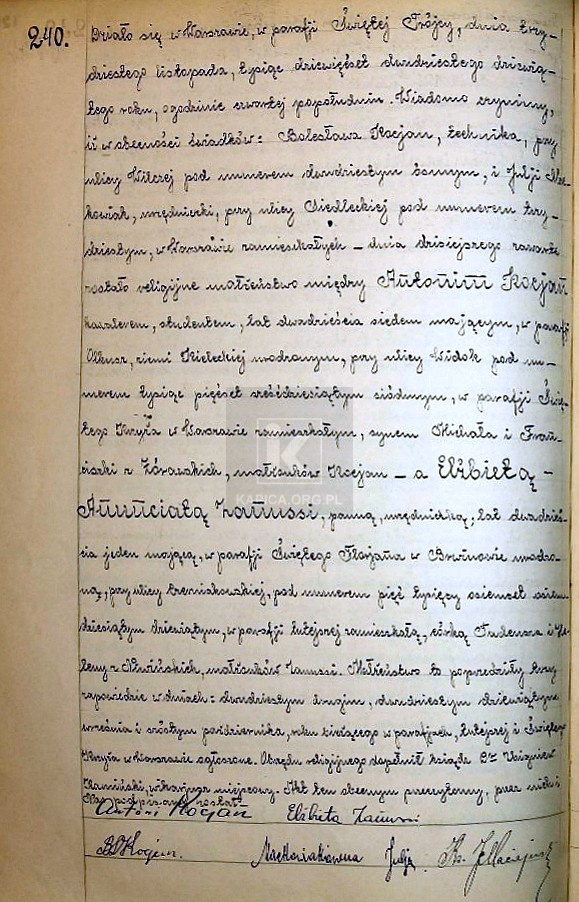 240.
Działo się w Warszawie, w parafji Świętej Trójcy, dnia trzy-
dziestego listopada, tysiąc dziewięćset dwudziestego dziewią-
tego roku, o godzinie czwartej popołudniu. Wiadomo czynimy,
iż w obecności świadków: Bolesława Kocjan, technika, przy
ulicy Wilczej pod numerem dwudziestym ósmym, i Julji Mać-
kowiak, urzędniczki, przy ulicy Siedleckiej pod numerem trzy-
dziestym, w Warszawie zamieszkałych – dnia dzisiejszego zawarte
zostało religijne małżeństwo między Antonim Kocjan
kawalerem, studentem, lat dwadzieścia siedem mającym, w parafji
Olkusz, ziemi Kieleckiej urodzonym, przy ulicy Widok pod nu-
merem tysiąc pięćset sześćdziesiątym siódmym, w parafji Świę-
tego Krzyża w Warszawie zamieszkałym, synem Michała i Fran-
ciszki z Żórawskich, małżonków Kocjan – a Elżbietą –
Annunciatą Zanussi, panną, urzędniczką, lat dwadzieś-
cia jeden mającą, w parafji Świętego Florjana w Brwinowie urodzo-
ną, przy ulicy Czerniakowskiej, pod numerem pięć tysięcy osiemset osiem-
dziesiątym dziewiątym, w parafji tutejszej zamieszkałą, córką Tadeusza i He-
leny z Niwińskich, małżonków Zanussi. Małżeństwo to poprzedziły trzy
zapowiedzie w dniach: dwudziestym drugim, dwudziestym dziewiątym
września i szóstym października, roku bieżącego w parafjach, tutejszej i Świętego
Krzyża w Warszawie ogłoszone. Obrzędu religijnego dopełnił ksiądz Dr Zbigniew
Kamiński, wikarjusz miejscowy. Akt ten obecnym przeczytany, przez nich i
Nas podpisany został
Antoni Kocjan Elżbieta Zanussi
B. Kocjan. Maćkowiakówna Julja Ks. J. Maciejewski
K
KAPICA.ORG.PL